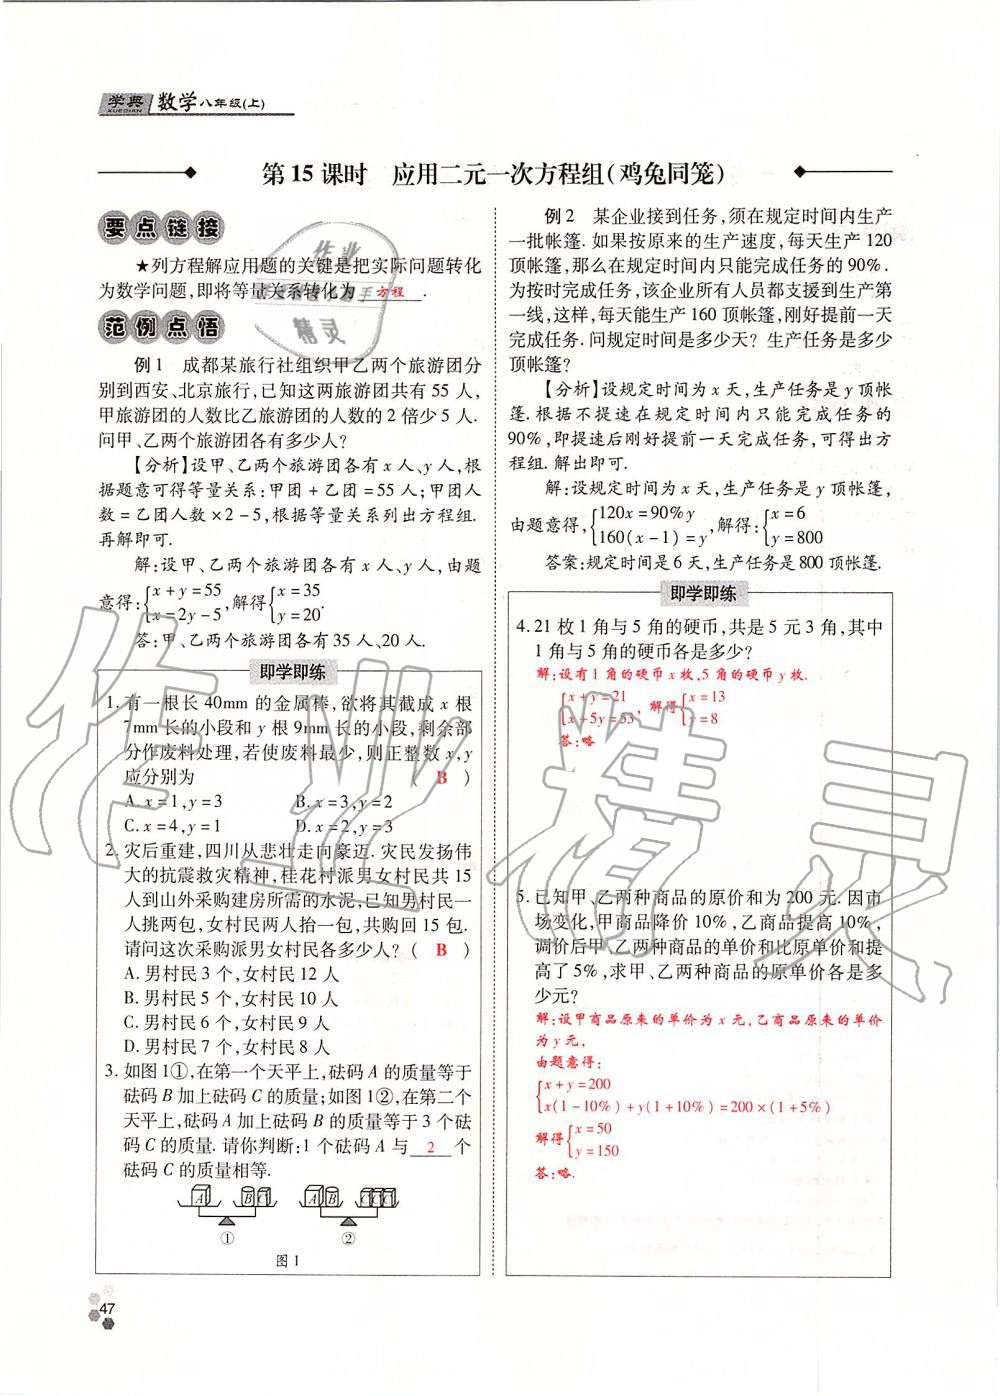 学典 数学八年级(上)
XUEDIAN
第15课时 应用二元一次方程组(鸡兔同笼)
要点链接
★列方程解应用题的关键是把实际问题转化
为数学问题,即将等量关系转化为 方程 .
范例点悟
例1 成都某旅行社组织甲乙两个旅游团分
别到西安、北京旅行,已知这两旅游团共有55人,
甲旅游团的人数比乙旅游团的人数的2倍少5人.
问甲、乙两个旅游团各有多少人?
【分析】设甲、乙两个旅游团各有x人、y人,根
据题意可得等量关系:甲团+乙团=55人;甲团人
数=乙团人数×2-5,根据等量关系列出方程组.
再解即可.
解:设甲、乙两个旅游团各有x人、y人,由题
意得:{x+y=55 x=2y-5,解得{x=35 y=20.
答:甲、乙两个旅游团各有35人、20人.
即学即练
1. 有一根长40mm的金属棒,欲将其截成x根
7mm长的小段和y根9mm长的小段,剩余部
分作废料处理,若使废料最少,则正整数x,y
应分别为 ( B )
A. x=1,y=3 B. x=3,y=2
C. x=4,y=1 D. x=2,y=3
2. 灾后重建,四川从悲壮走向豪迈.灾民发扬伟
大的抗震救灾精神,桂花村派男女村民共15
人到山外采购建房所需的水泥,已知男村民一
人挑两包,女村民两人抬一包,共购回15包.
请问这次采购派男女村民各多少人? ( B )
A. 男村民3个,女村民12人
B. 男村民5个,女村民10人
C. 男村民6个,女村民9人
D. 男村民7个,女村民8人
3. 如图1①,在第一个天平上,砝码A的质量等于
砝码B加上砝码C的质量;如图1②,在第二个
天平上,砝码A加上砝码B的质量等于3个砝
码C的质量.请你判断:1个砝码A与 2 个
砝码C的质量相等.
A B C A B C C C
① ②
图1
47
例2 某企业接到任务,须在规定时间内生产
一批帐篷.如果按原来的生产速度,每天生产120
顶帐篷,那么在规定时间内只能完成任务的90%.
为按时完成任务,该企业所有人员都支援到生产第
一线,这样,每天能生产160顶帐篷,刚好提前一天
完成任务.问规定时间是多少天?生产任务是多少
顶帐篷?
【分析】设规定时间为x天,生产任务是y顶帐
篷.根据不提速在规定时间内只能完成任务的
90%,即提速后刚好提前一天完成任务,可得出方
程组.解出即可.
解:设规定时间为x天,生产任务是y顶帐篷,
由题意得,{120x=90%y 160(x-1)=y,解得:{x=6 y=800
答案:规定时间是6天,生产任务是800顶帐篷.
即学即练
4. 21枚1角与5角的硬币,共是5元3角,其中
1角与5角的硬币各是多少?
解:设有1角的硬币x枚,5角的硬币y枚.
{x+y=21 x+5y=53, 解得{x=13 y=8
答:略
5. 已知甲、乙两种商品的原价和为200元.因市
场变化,甲商品降价10%,乙商品提高10%,
调价后甲、乙两种商品的单价和比原单价和提
高了5%,求甲、乙两种商品的原单价各是多
少元?
解:设甲商品原来的单价为x元,乙商品原来的单价
为y元,
由题意得:
{x+y=200
x(1-10%)+y(1+10%)=200×(1+5%)
解得{x=50 y=150
答:略.
作业精灵